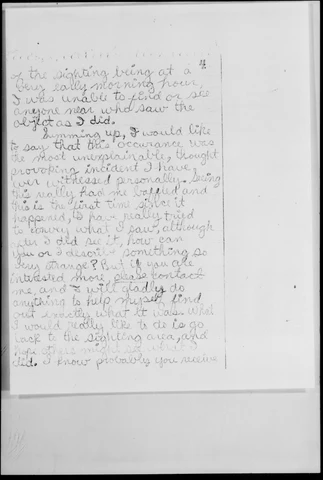 4
of the sighting being at a
very early morning hour,
I was unable to find or see
anyone near who saw the
object as I did.
Summing up, I would like
to say that this occurance was
the most unexplainable, thought
provoking incident I have
ever witnessed personally. Seeing
this really had me baffled and
this is the first time since it
happened, to have really tried
to convey what I saw, although
after I did see it, how can
you or I describe something so
very strange? But if you are
interested more, please contact
me, and I will gladly do
anything to help myself find
out exactly what it was. What
I would really like to do is go
back to the sighting area, and
hope others might see what I
did. I know probably you receive